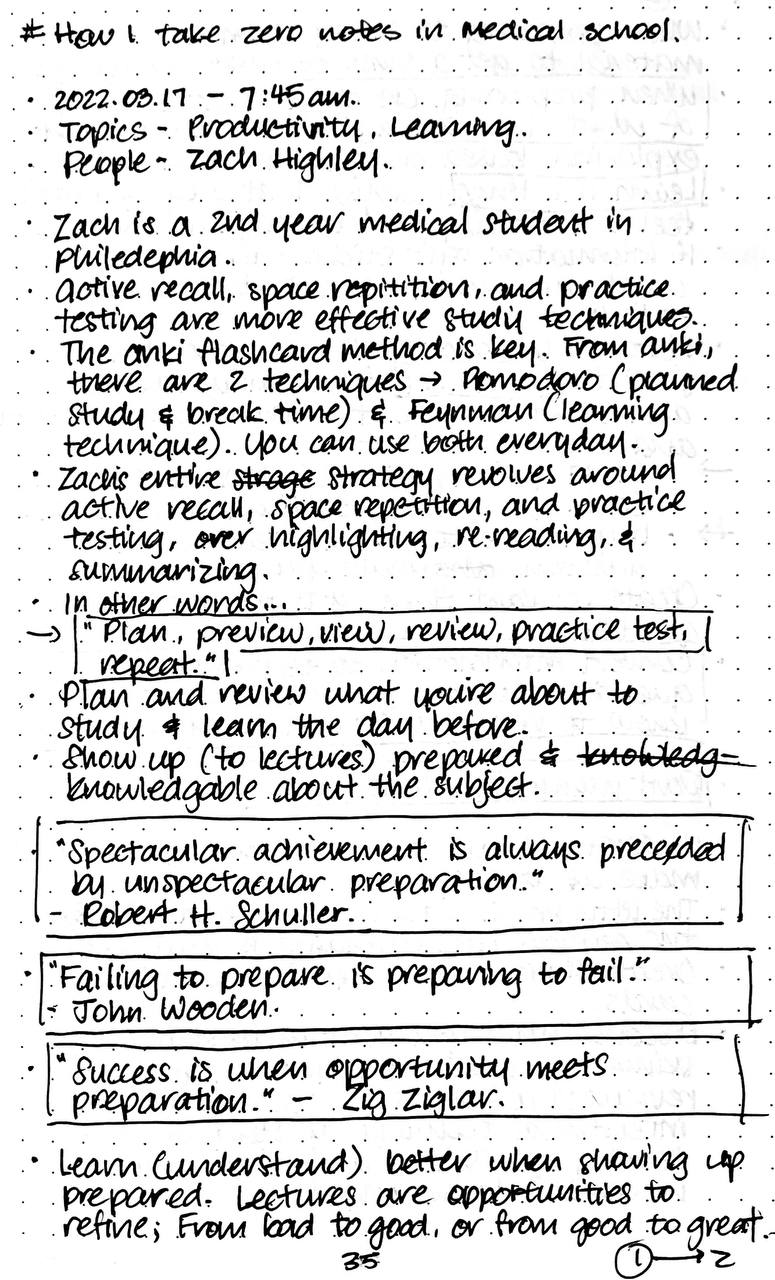 # How I take zero notes in medical school.
· 2022.03.17 - 7:45am.
· Topics - Productivity, Learning.
· People - Zach Highley.
· Zach is a 2nd year medical student in
Philedephia.
· active recall, space repitition, and practice
testing are more effective study techniques.
· The anki flashcard method is key. From anki,
there are 2 techniques → Pomodoro (planned
study & break time) & Feynman (learning
technique). You can use both everyday.
· Zach's entire strage strategy revolves around
active recall, space repetition, and practice
testing, over highlighting, re-reading, &
summarizing.
· In other words...
→ "Plan, preview, view, review, practice test,
repeat."
· Plan and review what you're about to
study & learn the day before.
· Show up (to lectures) prepared & knowledg-
knowledgable about the subject.
· "Spectacular achievement is always preceded
by unspectacular preparation."
- Robert H. Schuller.
· "Failing to prepare is preparing to fail."
- John Wooden.
· "Success is when opportunity meets
preparation." - Zig Ziglar.
· Learn (understand) better when showing up
prepared. Lectures are opportunities to
refine; From bad to good, or from good to great.
35
1 → 2